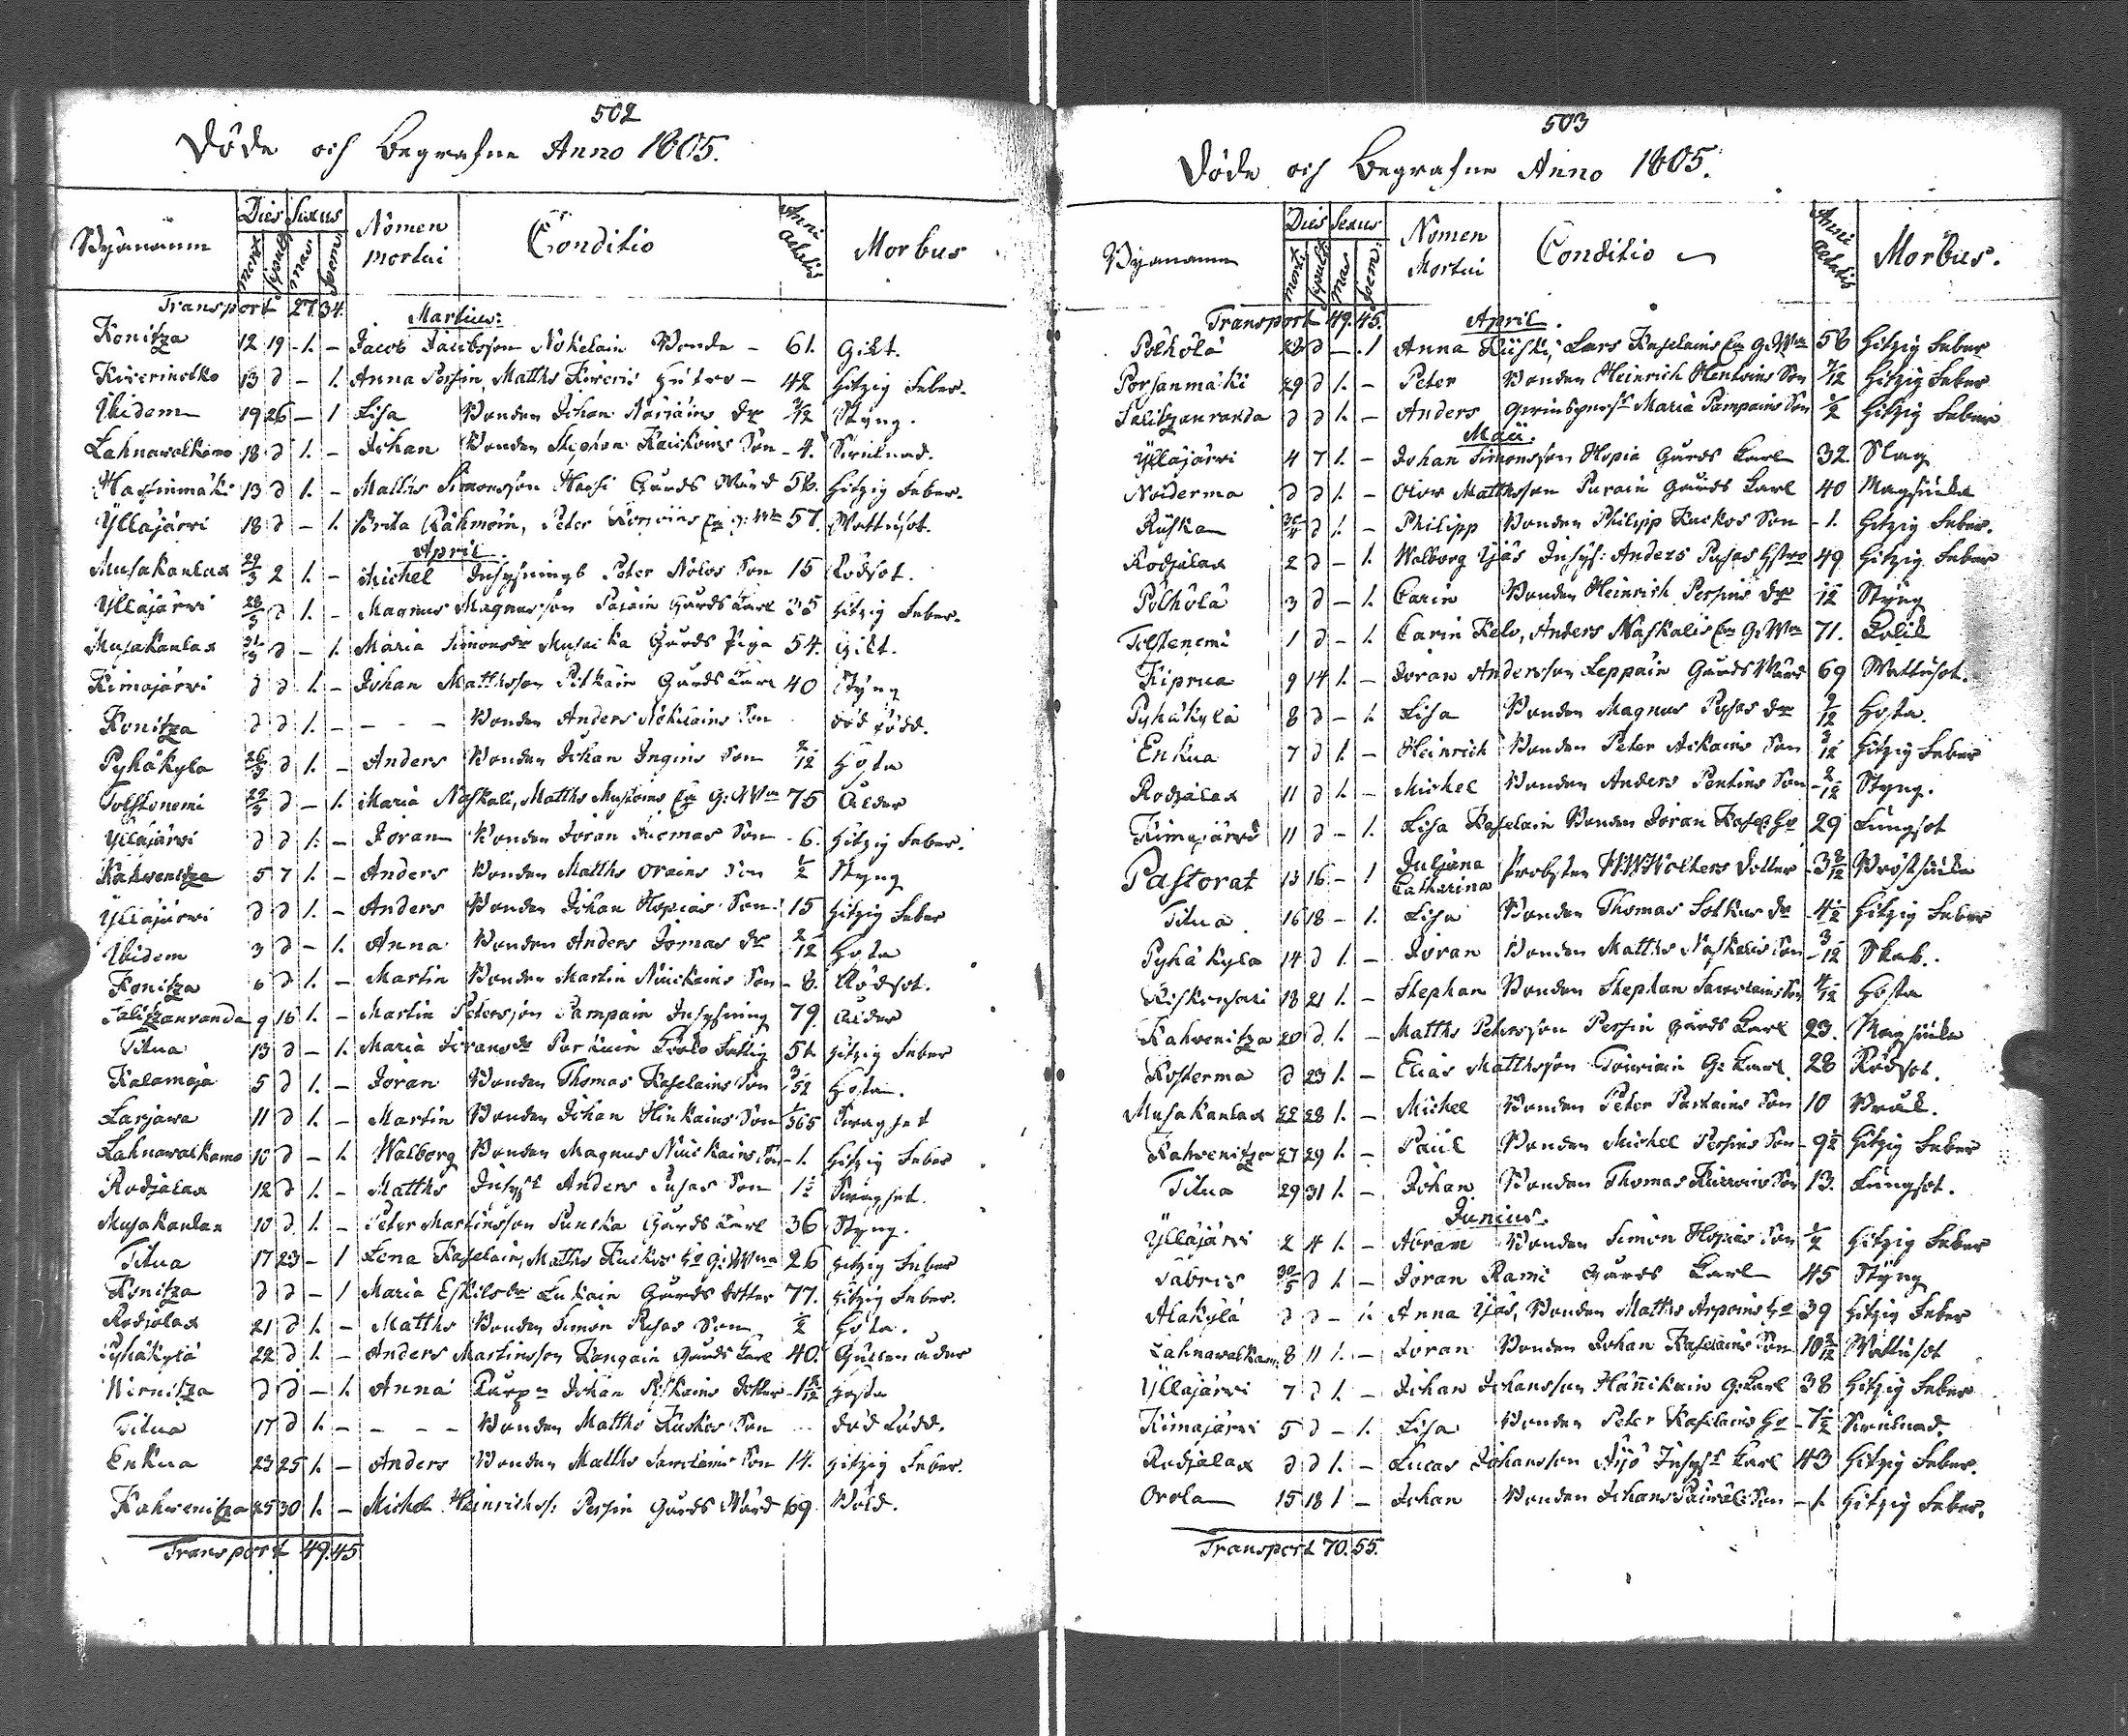 502
Döde och Begrafne Anno 1805.
Byanamn Dies mort. sepult. Sexus mas foem. Nomen mortui Conditio Anni aetatis Morbus
Transport 27. 34.
Martius:
Konitza 12 19 1. – Jacob Jacobsson Nokelain Bonde – 61. Gikt.
Kiverinelko 13 d – 1. Anna Persin, Matths Kiveris Hustro – 42 Hitzig Feber.
Ibidem 19 26 – 1 Lisa Bonden Johan Dr /12 Styng.
Lahnawalkamo 18 d 1. – Johan Bonden Stephan Son – 4.
Hassinmäki 13 d 1. – Matths Simonsson Hassi Gårds Wärd 58. Hitzig Feber.
Ylläjärvi 18 d – 1. Brita Rähmöin, Peter Enka G: Wa 57. Wattusot.
April.
Musakanlax 29/3 2 1. – Michel Inhysnings Peter Nolos Son 15 Rödsot.
Ylläjärvi 28/3 d 1. – Magnus Magnusson Pajain Gårds Karl 35 Hitzig Feber.
Musakanlax 31/3 d – 1. Maria Simonsdr Musaika Gårds Piga 54. Gikt.
Kimajärvi d d 1. – Johan Matthsson Pitkäin Gårds Karl 40 Styng
Konitza d d 1. – – – – Bonden Anders Nokelains Son död född.
Pyhäkylä 26/3 d 1. – Anders Bonden Johan Ingins Son 2/12 Hosta
Tolstonemi 29/3 d – 1. Maria Naskali, Matths Mustoins Enka G: Wa 75 Ålder
Ylläjärvi d d 1. – Jöran Bonden Jöran Tuomas Son – 6. Hitzig Feber.
Kahvenitza 5 7 1. – Anders Bonden Matths Orains Son 1/2 Styng
Ylläjärvi d d 1. – Anders Bonden Johan Hopias Son 15 Hitzig Feber
Ibidem 3 d – 1. Anna Bonden Anders Jomas Dr 2/12 Hosta
Konitza 6 d 1. – Martin Bonden Martin Nuickains Son – 8. Rödsot.
Salitzanranda 9 16 1. – Martin Petersson Pampain Inhysning 79. Ålder
Titua 13 d – 1. Maria Fattig 51. Hitzig Feber
Kalamaja 5 d 1. – Jöran Bonden Thomas Kaselains Son 3/52 Hosta.
Larjava 11 d 1. – Martin Bonden Johan Hinkains Son 1/365 Swaghet
Lahnawalkamo 10 d – 1. Walborg Bonden Magnus Nuickains – 1. Hitzig Feber
Rodjalax 12 d 1. – Matths Inhyst Anders Pusas Son 1 1/2 Swaghet.
Musakanlax 10 d. 1. – Peter Martinsson Punska Gårds Karl 36 Styng.
Titua 17 23 – 1 Lena Kaselain, Matths Kuckos Ho G: Wa 26 Hitzig Feber
Konitza d d – 1 Maria Eskilsdr Lukain Gårds dotter 77. Hitzig Feber.
Rodjalax 21 d 1. – Matths Bonden Simon Pusas Son 1/2 Hosta.
Pyhäkylä 22 d 1. – Anders Martinsson Kangain Gårds Karl 40. Gullen åder
Wirnitza d d – 1. Anna Johan Riskains dotter – 1 Hosta
Titua 17 d 1. – – – – Bonden Matths Kuckos Son ... död född.
Enkua 23 25 1. – Anders Bonden Matths Savolains Son 14. Hitzig Feber.
Kahvenitza 25 30 1. – Michel Heinrichss: Persin Gårds Wärd 69. Böld.
Transport 49. 45
503
Döde och Begrafne Anno 1805.
Byanamn Dies mort. sepult. Sexus mas foem. Nomen Mortui Conditio Anni Aetatis Morbus.
Transport 49. 45.
April.
Pölhölä 28 d – 1 Anna Kuski, Lars Kaselains Enka G: Wa 58 Hitzig Feber
Porsanmäki 29 d 1. – Peter Bonden Heinrich Hentuins Son 7/12 Hitzig Feber
Salitzanranda d d 1. – Anders Maria Pampains Son 1/2 Hitzig Feber
Maii.
Ylläjärvi 4 7 1. – Johan Simonsson Hopia Gårds Karl 32. Slag
Noiderma d d 1. – Olov Matthsson Purain Gårds Karl 40 Magsiuka
Ruska d 1. – Philipp Bonden Philipp Kuckos Son – 1. Hitzig Feber.
Rodjalax 2 d – 1. Walborg Ijäs Inhys: Anders Pusas Hstro 49 Hitzig Feber
Pölhölä 3 d – 1. Carin Bonden Heinrich Persins Dr /12 Styng
Tolstenemi 1 d – 1. Carin Kelo, Anders Naskalis Enka G: Wa 71. Kolik
Kiprua 9 14 1. – Jöran Andersson Leppäin Gårds Wärd 69 Wattusot.
Pyhäkylä 8 d – 1. Lisa Bonden Magnus Pusas Dr /12 Hosta.
Enkua 7 d 1. – Heinrich Bonden Peter Ackains Son 3/12 Hitzig Feber
Rodjalax 11 d 1. – Michel Bonden Anders Pentins Son 2/12 Styng.
Kimajärvi 11 d – 1. Lisa Kaselain Bonden Jöran Kasel: Ho 29 Lungsot
Pastorat 13 16 – 1 Juljana Catharina Probsten Wolters Dotter – 3 /12 Bröstsiuka
Titua 16 18 – 1. Lisa Bonden Thomas Solkus Dr – 4 1/2 Hitzig Feber
Pyhäkylä 14 d 1. – Jöran Bonden Matths Naskalis Son – 3/12 Skab.
Riskensari 18 21 1. – Stephan Bonden Stephan Savolains Son 4/12 Hosta
Kahvenitza 20 d. 1. – Matths Petersson Persin Gårds Karl 23. Magsiuka
Kosterma d 23 1. – Elias Matthsson Toiviain G: Karl 28 Rödsot.
Musakanlax 22 28 1. – Michel Bonden Peter Partains Son 10 Bråk.
Kahvenitza 27 29 1. – Paul Bonden Michel Persins Son – 9 1/2 Hitzig Feber
Titua 29 31 1. – Johan Bonden Thomas Son 13. Lungsot.
Junius.
Ylläjärvi 2 4 1. – Abram Bonden Simon Hopias Son 1/2 Hitzig Feber
Sabris 30/5 d 1. – Jöran Rami Gårds Karl 45 Styng
Alakylä d d – 1. Anna Ijäs, Bonden Matths Arpoins Ho 39 Hitzig Feber
Lahnawalkam: 8 11 1. – Jöran Bonden Johan Kaselains Son 10 /12 Wattusot
Ylläjärvi 7 d 1. – Johan Johansson Hännikäin G: Karl 38 Hitzig Feber
Kimajärvi 5 d – 1. Lisa Bonden Peter Kaselains – 7 1/2
Rodjalax d d 1. – Lucas Johansson Äijö Inhyst Karl 43 Hitzig Feber.
Orola 15 18 1 – Johan Bonden Johans Son – 1. Hitzig Feber.
Transport 70. 55.